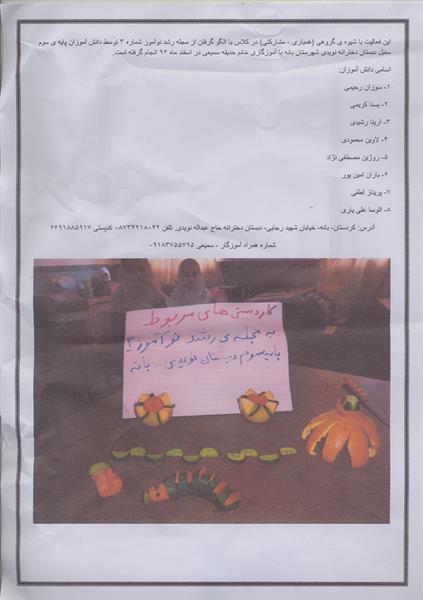 این فعالیت با شیوه ی گروهی (همیاری - مشارکتی) در کلاس با الگو گرفتن از مجله رشد نوآموز شماره ۳ توسط دانش آموزان پایه ی سوم
سنبل دبستان دخترانه نویدی شهرستان بانه با آموزگاری خانم حدیقه سمیعی در اسفند ماه ۹۶ انجام گرفته است.
اسامی دانش آموزان:
۱- سوزان رحیمی
۲- یسنا کریمی
۳- آرینا رشیدی
۴- لاوین محمودی
۵- روژین مصطفی نژاد
۶- باران امین پور
۷- پریناز لطفی
۸- آتوسا علی یاری
آدرس: کردستان- بانه- خیابان شهید رجایی- دبستان دخترانه حاج عبداله نویدی. تلفن ۰۸۷۳۴۲۱۸۰۴۲ کدپستی ۶۶۹۱۸۸۵۹۱۷
شماره همراه آموزگار - سمیعی ۰۹۱۸۳۷۵۵۷۹۵
کاردستی های مربوط
به مجله ی رشد نوآموز ۳
پایه سوم دبستان نویدی - بانه